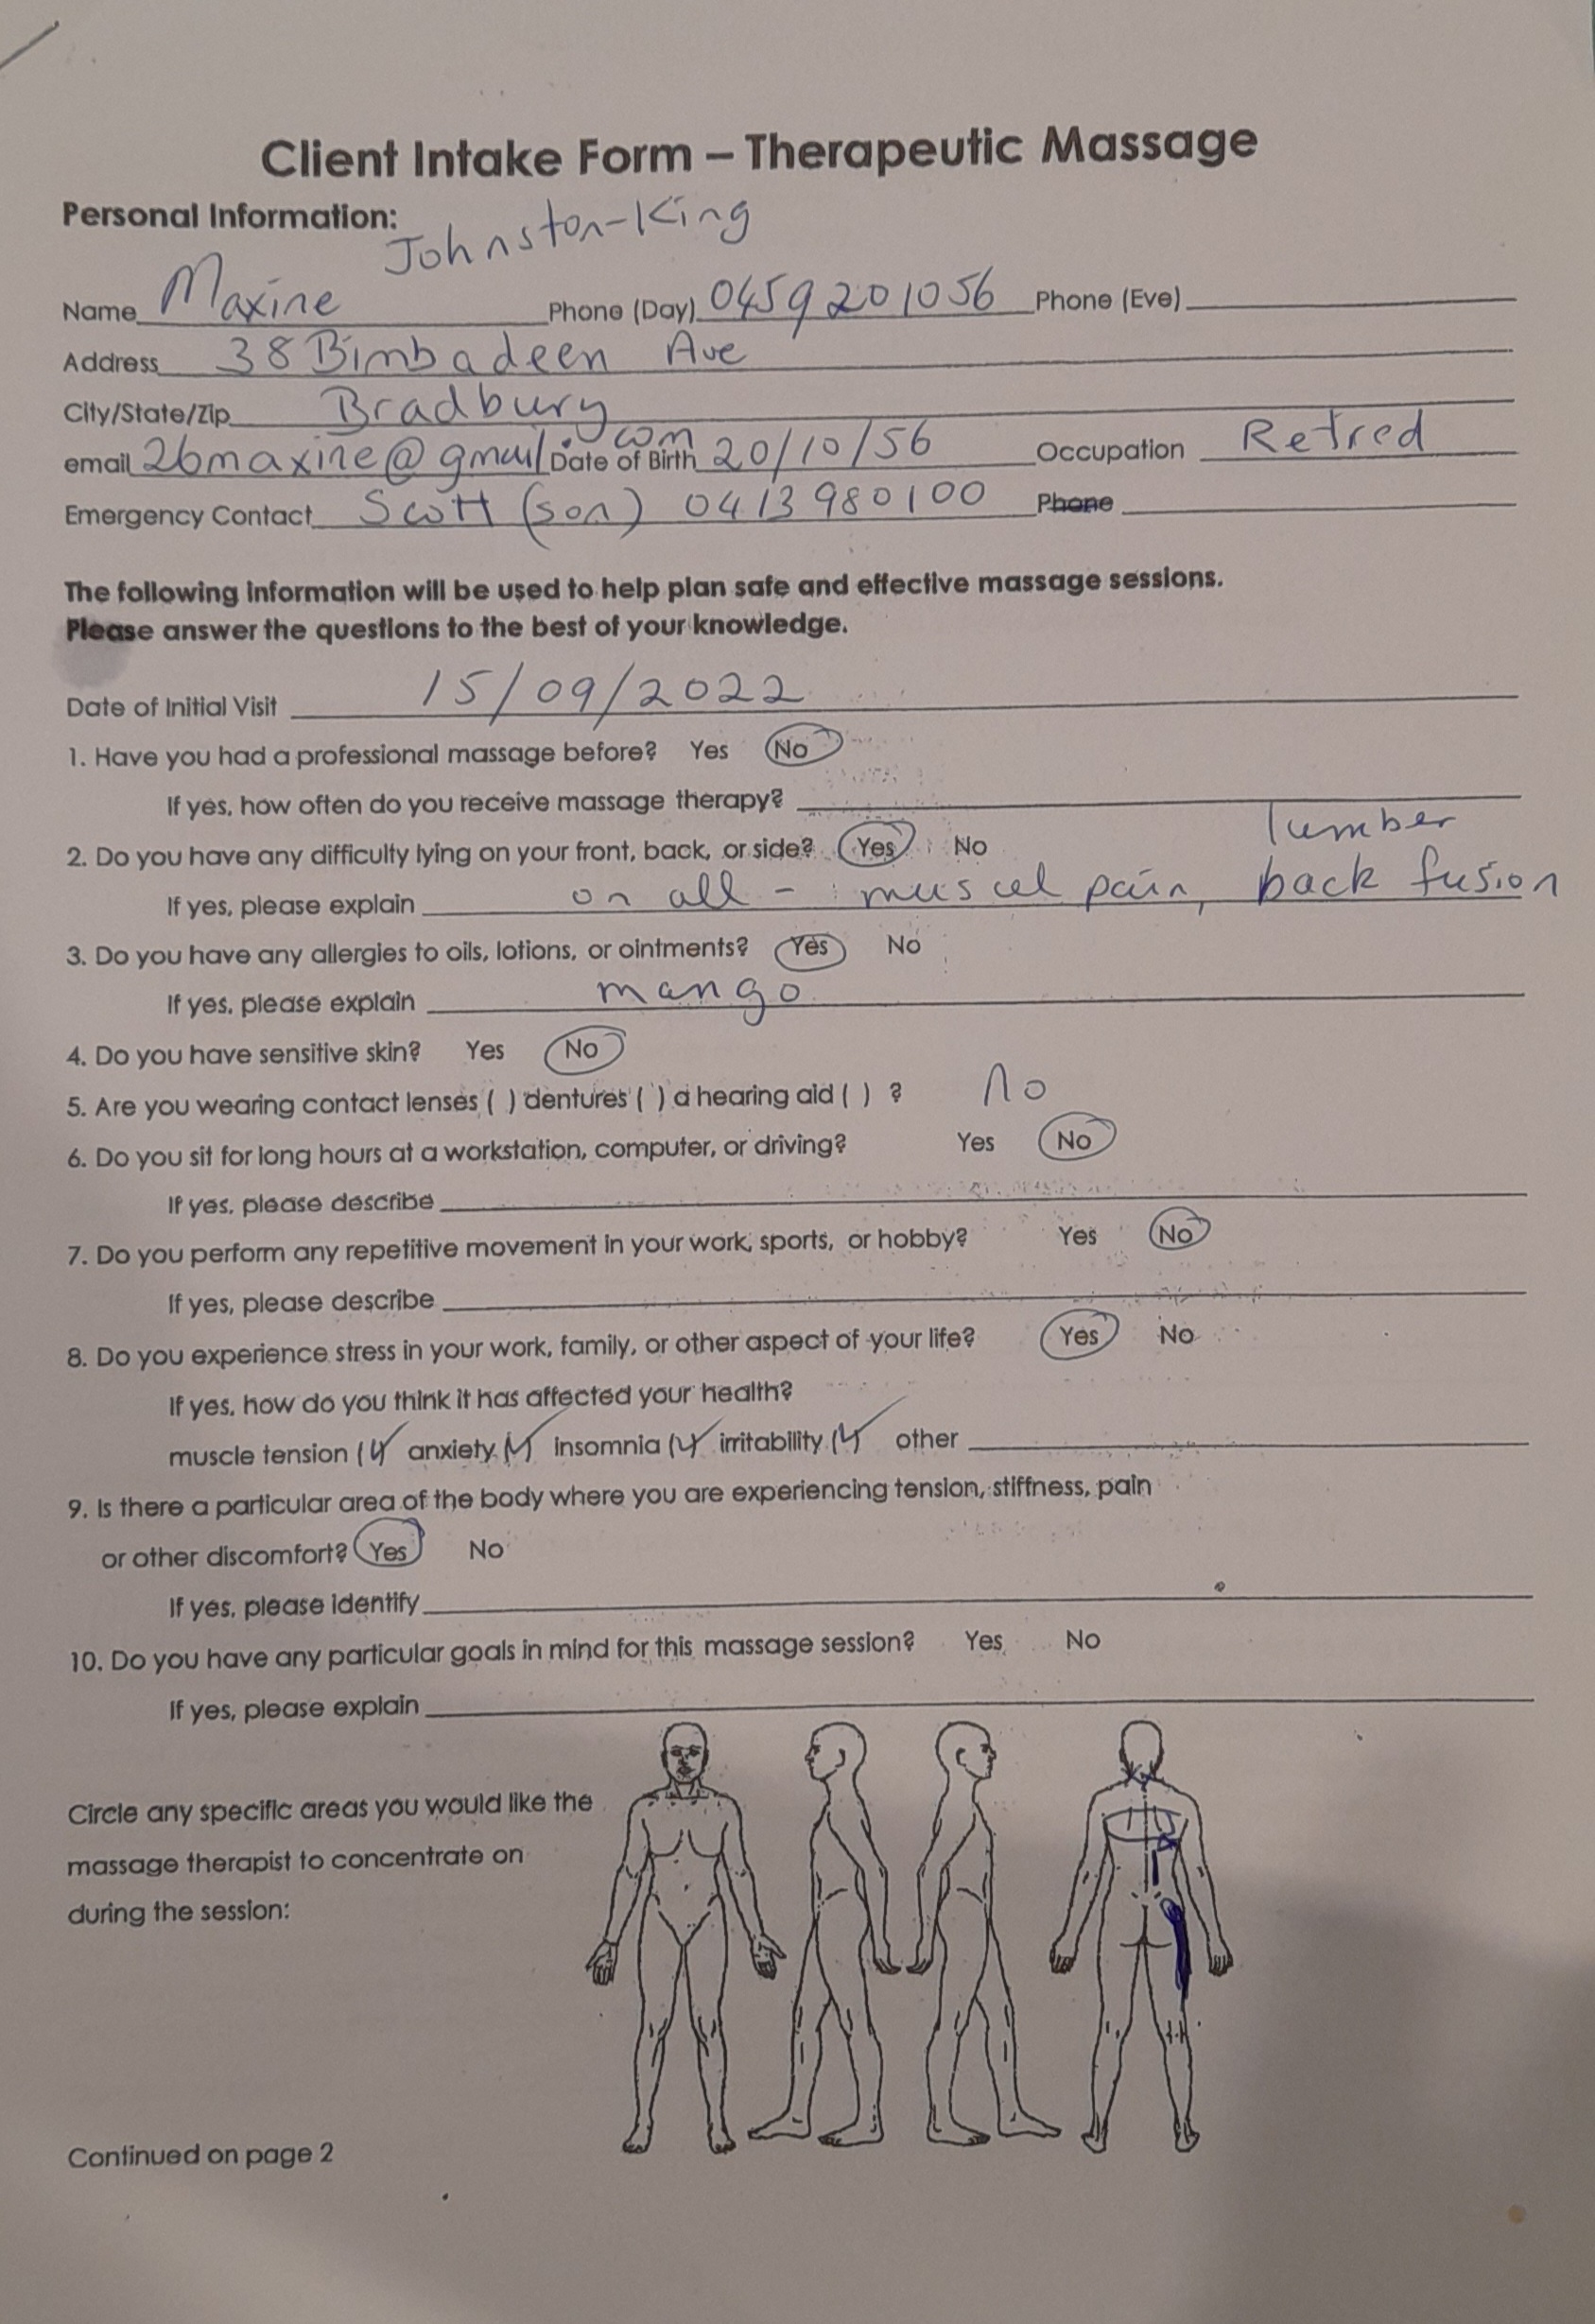 Client Intake Form – Therapeutic Massage
Personal Information:
Johnston-King
Name Maxine Phone (Day) 0459201056 Phone (Eve)
Address 38 Bimbadeen Ave
City/State/Zip Bradbury
email 26maxine@gmail.com Date of Birth 20/10/56 Occupation Retred
Emergency Contact Scott (son) 0413980100 Phone
The following information will be used to help plan safe and effective massage sessions.
Please answer the questions to the best of your knowledge.
Date of Initial Visit 15/09/2022
1. Have you had a professional massage before? Yes No
If yes, how often do you receive massage therapy?
lumber
2. Do you have any difficulty lying on your front, back, or side? Yes No
If yes, please explain on all - muscel pain, back fusion
3. Do you have any allergies to oils, lotions, or ointments? Yes No
If yes, please explain mango
4. Do you have sensitive skin? Yes No
5. Are you wearing contact lenses ( ) dentures ( ) a hearing aid ( ) ? no
6. Do you sit for long hours at a workstation, computer, or driving? Yes No
If yes, please describe
7. Do you perform any repetitive movement in your work, sports, or hobby? Yes No
If yes, please describe
8. Do you experience stress in your work, family, or other aspect of your life? Yes No
If yes, how do you think it has affected your health?
muscle tension (✓) anxiety (✓) insomnia (✓) irritability (✓) other
9. Is there a particular area of the body where you are experiencing tension, stiffness, pain
or other discomfort? Yes No
If yes, please identify
10. Do you have any particular goals in mind for this massage session? Yes No
If yes, please explain
Circle any specific areas you would like the
massage therapist to concentrate on
during the session:
Continued on page 2